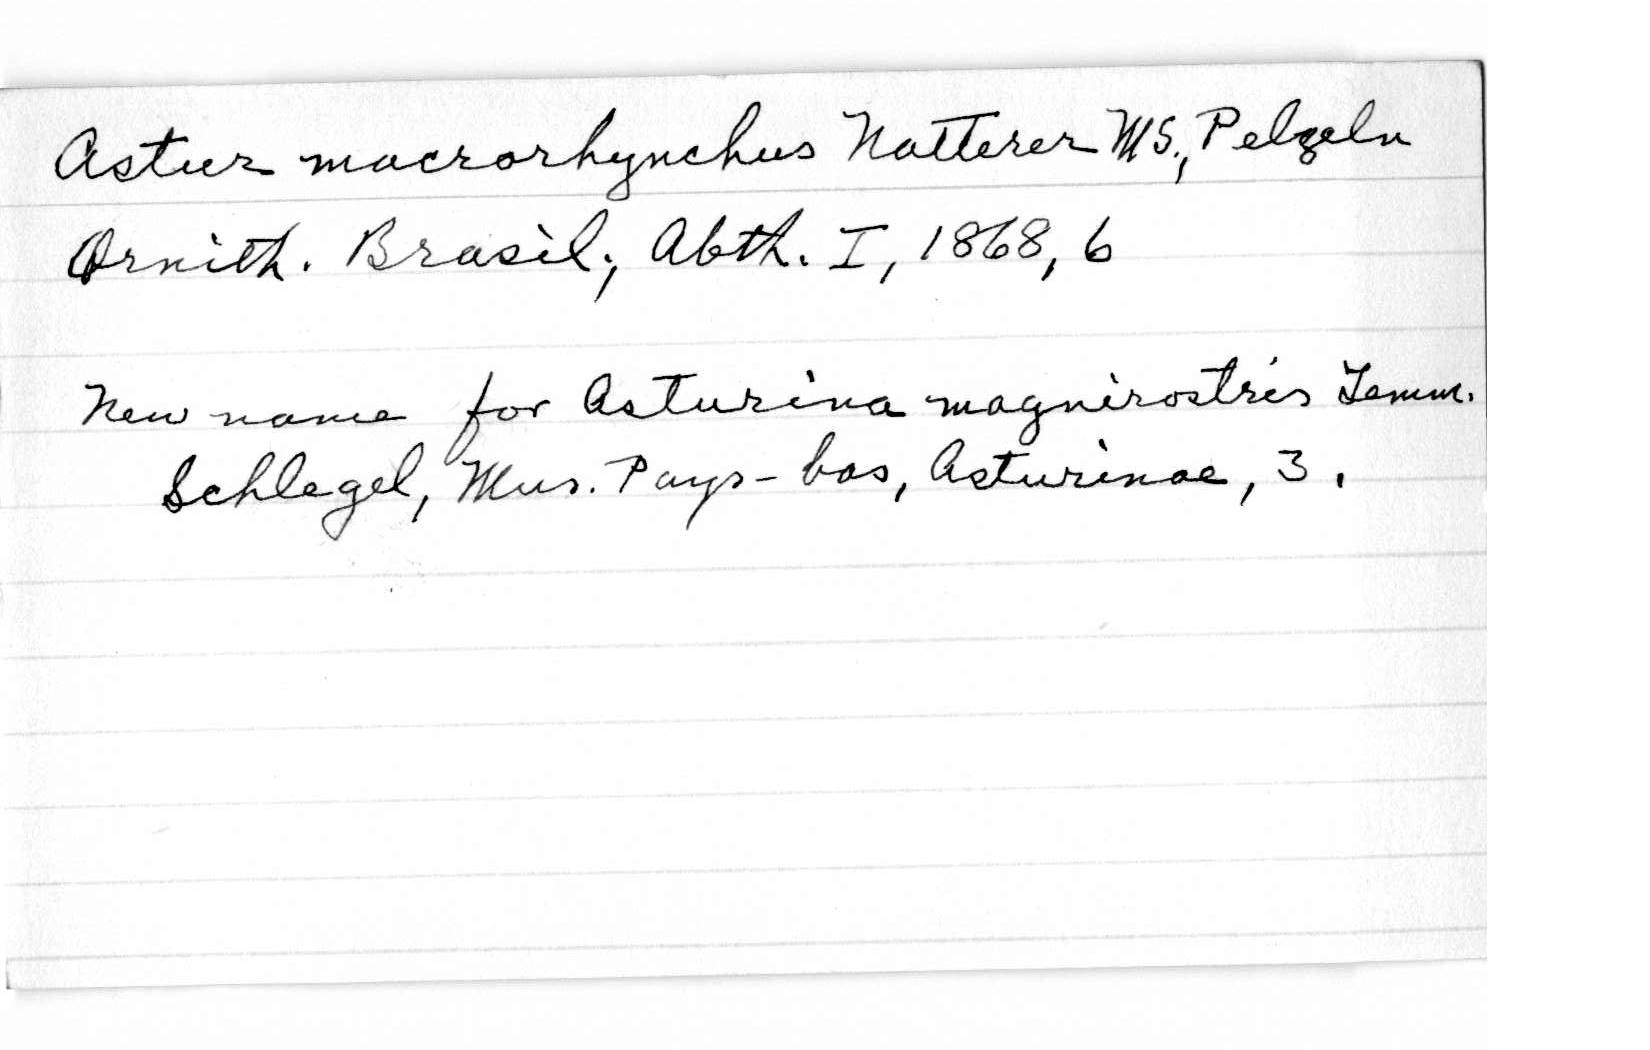 Astur macrorhynchus Natterer MS., Pelzeln
Ornith. Brasil., Abth. I, 1868, 6
New name for Asturina magnirostris Temm.
Schlegel, Mus. Pays-bas, Asturinae, 3.